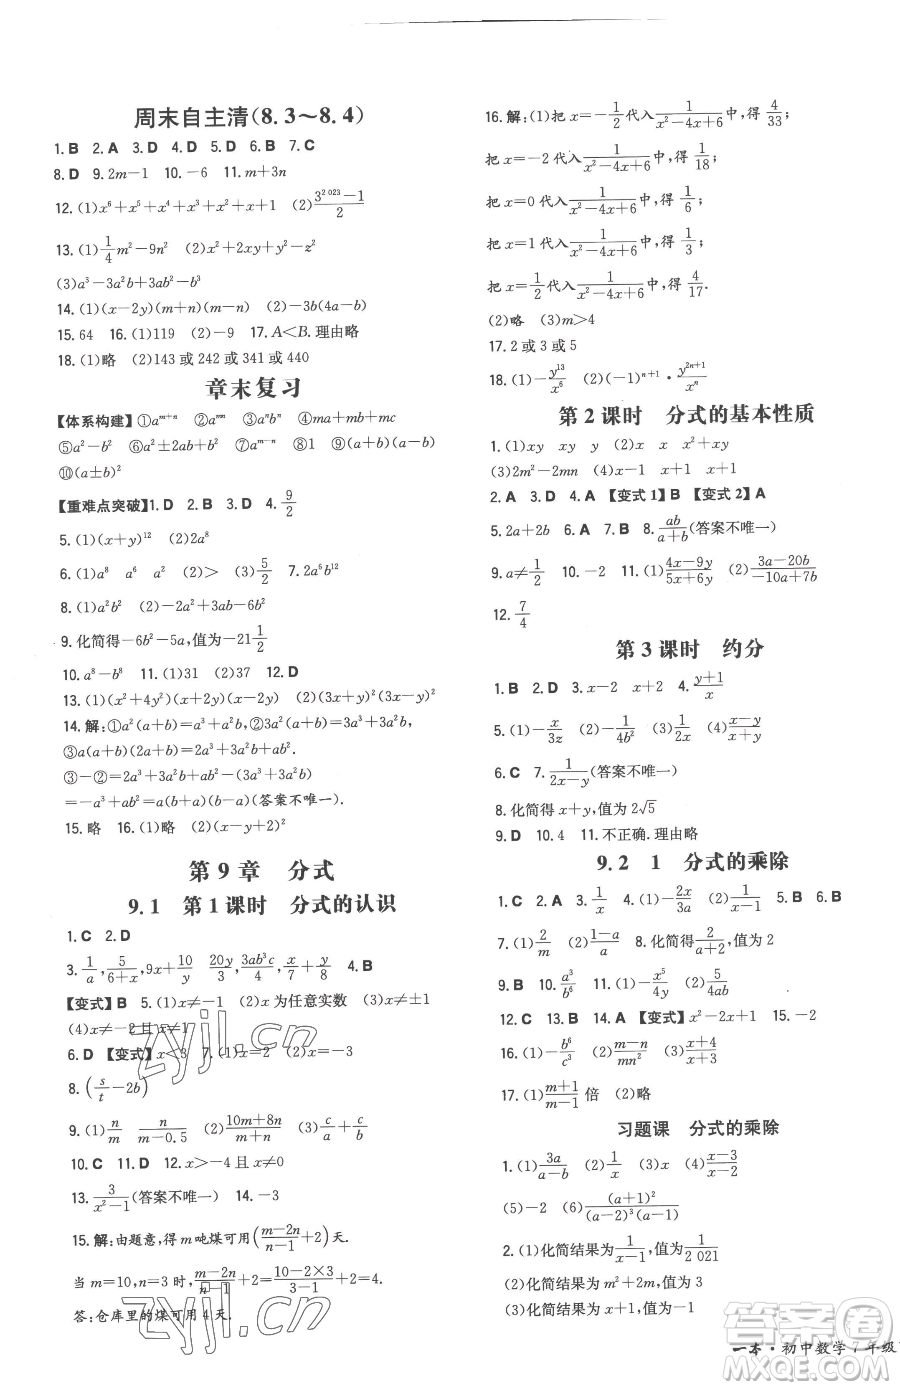 周末自主清(8.3～8.4)
1.B 2.A 3.D 4.D 5.D 6.B 7.C
8.D 9.2m-1 10.-6 11.m+3n
12.(1)x⁶+x⁵+x⁴+x³+x²+x+1 (2)(3²⁰²³-1)/2
13.(1)1/4m²-9n² (2)x²+2xy+y²-z²
(3)a³-3a²b+3ab²-b³
14.(1)(x-2y)(m+n)(m-n) (2)-3b(4a-b)
15.64 16.(1)119 (2)-9 17.A<B.理由略
18.(1)略 (2)143或242或341或440
章末复习
【体系构建】①aᵐ⁺ⁿ ②aᵐⁿ ③aⁿbⁿ ④ma+mb+mc
⑤a²-b² ⑥a²±2ab+b² ⑦aᵐ⁻ⁿ ⑧1 ⑨(a+b)(a-b)
⑩(a±b)²
【重难点突破】1.D 2.B 3.D 4.9/2
5.(1)(x+y)¹² (2)2a⁸
6.(1)a⁸ a⁶ a² (2)> (3)5/2 7.2a⁶b¹²
8.(1)a²b² (2)-2a²+3ab-6a
9.化简得-6b²-5a,值为-21 1/2
10.a⁸-b⁸ 11.(1)31 (2)37 12.D
13.(1)(x²+4y²)(x+2y)(x-2y) (2)(3x+y)²(3x-y)²
14.解:①a²(a+b)=a³+a²b,②3a²(a+b)=3a³+3a²b,
③a(a+b)(a+b)=a³+2a²b+ab².
③-②=a³+2a²b+ab²-(3a³+3a²b)
=-a³+ab²=a(b+a)(b-a)(答案不唯一).
15.略 16.(1)略 (2)(x-y+2)²
第9章 分式
9.1 第1课时 分式的认识
1.C 2.D
3.1/a,5/(6+x),9x+10/y 20y/3,3ab³c/4,x/7+y/8 4.B
【变式】B 5.(1)x≠-1 (2)x为任意实数 (3)x≠±1
(4)x≠-2且x≠1
6.D 【变式】x<3 7.(1)x=2 (2)x=-3
8.(s/t-2b)
9.(1)n/m n/(m-0.5) (2)(10m+8n)/(m+n) (3)c/a c/(a+x)
10.C 11.D 12.x>-4且x≠0
13.3/(x²-1)(答案不唯一) 14.-3
15.解:由题意,得m吨煤可用((m-2n)/(n-1)+2)天.
当m=10,n=3时,(m-2n)/(n-1)+2=(10-2×3)/(3-1)+2=4.
答:仓库里的煤可用4天.
16.解:(1)把x=-1/2代入1/(x²-4x+6)中,得4/33;
把x=-2代入1/(x²-4x+6)中,得1/18;
把x=0代入1/(x²-4x+6)中,得1/6;
把x=1代入1/(x²-4x+6)中,得1/3;
把x=1/2代入1/(x²-4x+6)中,得4/17.
(2)略 (3)m>4
17.2或3或5
18.(1)-y¹³/x⁶ (2)(-1)ⁿ⁺¹·y²ⁿ⁺¹/xⁿ
第2课时 分式的基本性质
1.(1)xy xy y (2)x x x²+xy
(3)2m²-2mn (4)x-1 x+1 x+1
2.A 3.D 4.A 【变式1】B 【变式2】A
5.2a+2b 6.A 7.B 8.ab/(a+b)(答案不唯一)
9.a≠1/2 10.-2 11.(1)(4x-9y)/(5x+6y) (2)(3a-20b)/(-10a+7b)
12.7/4
第3课时 约分
1.B 2.D 3.x-2 x+2 4.(y+1)/x
5.(1)-x/3z (2)-1/4b² (3)1/2x (4)(x-y)/(x+y)
6.C 7.1/(2x-y)(答案不唯一)
8.化简得x+y,值为2√5
9.D 10.4 11.不正确.理由略
9.2 1 分式的乘除
1.C 2.A 3.1/x 4.(1)-2x/3a (2)1/(x-1) 5.B 6.B
7.(1)2/m (2)(1-a)/a 8.化简得2/(a+2),值为2
9.B 10.a³/b⁶ 11.(1)-x⁵/4y (2)5/4ab
12.C 13.B 14.A 【变式】x²-2x+1 15.-2
16.(1)-b⁶/c³ (2)(m-n)/mn² (3)(x+4)/(x+3)
17.(1)(m+1)/(m-1)倍 (2)略
习题课 分式的乘除
1.(1)3a/(a-b) (2)1/x (3)x (4)(x-3)/(x-2)
(5)-2 (6)(a+1)²/((a-2)³(a-1))
2.(1)化简结果为1/(x-1),值为1/2 021
(2)化简结果为m²+2m,值为1
(3)化简结果为x+1,值为-1
一本·初中数学7年级
zyjl.cn
zyjl.cn
答案圈
MXQE.COM